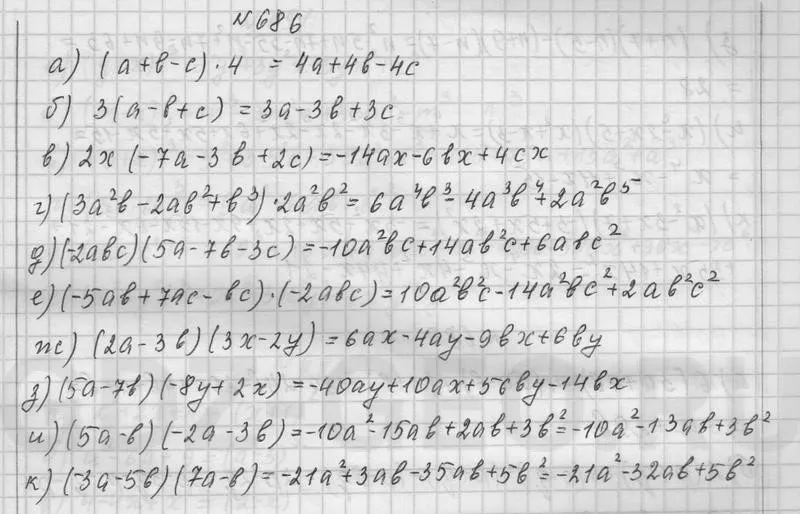 № 686
а) (a+b-c)·4 = 4a+4b-4c
б) 3(a-b+c) = 3a-3b+3c
в) 2x(-7a-3b+2c)=-14ax-6bx+4cx
г) (3a²b-2ab²+b³)·2a²b² = 6a⁴b³-4a³b⁴+2a²b⁵
д) (-2abc)(5a-7b-3c)=-10a²bc+14ab²c+6abc²
е) (-5ab+7ac-bc)·(-2abc)=10a²b²c-14a²bc²+2ab²c²
ж) (2a-3b)(3x-2y)=6ax-4ay-9bx+6by
з) (5a-7b)(-8y+2x)=-40ay+10ax+56by-14bx
и) (5a-b)(-2a-3b)=-10a²-15ab+2ab+3b²=-10a²-13ab+3b²
к) (-3a-5b)(7a-b)=-21a²+3ab-35ab+5b²=-21a²-32ab+5b²